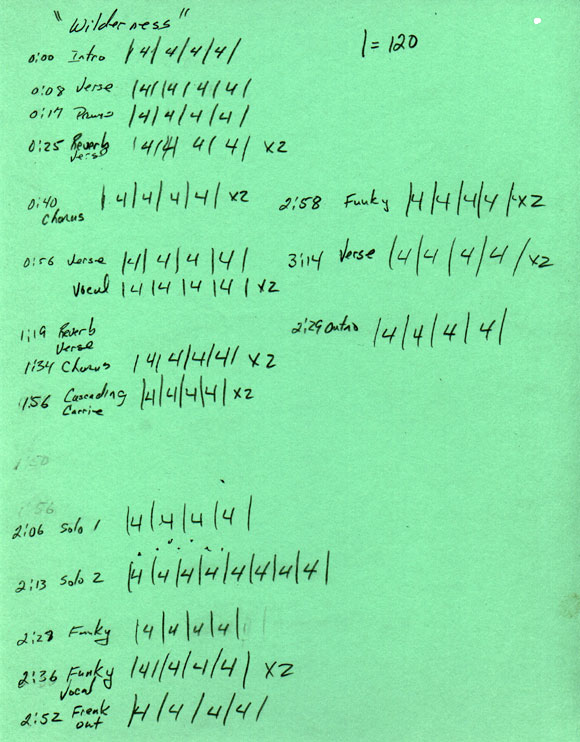 "Wilderness"
0:00 Intro |4|4|4|4|
0:08 Verse |4|4|4|4|
0:17 |4|4|4|4|
0:25 Reverb |4|4|4|4| x2
Verse
0:40 |4|4|4|4| x2
Chorus
0:56 Verse |4|4|4|4|
Vocal |4|4|4|4| x2
1:19 Reverb
Verse
1:34 Chorus |4|4|4|4| x2
1:56 Cascading |4|4|4|4| x2
Carrie
1:50
1:56
2:06 Solo 1 |4|4|4|4|
2:13 Solo 2 |4|4|4|4|4|4|4|4|
2:28 Funky |4|4|4|4|
2:36 Funky |4|4|4|4| x2
Vocal
2:52 Freak |4|4|4|4|
out
| = 120
2:58 Funky |4|4|4|4| x2
3:14 Verse |4|4|4|4| x2
2:29 Outro |4|4|4|4|